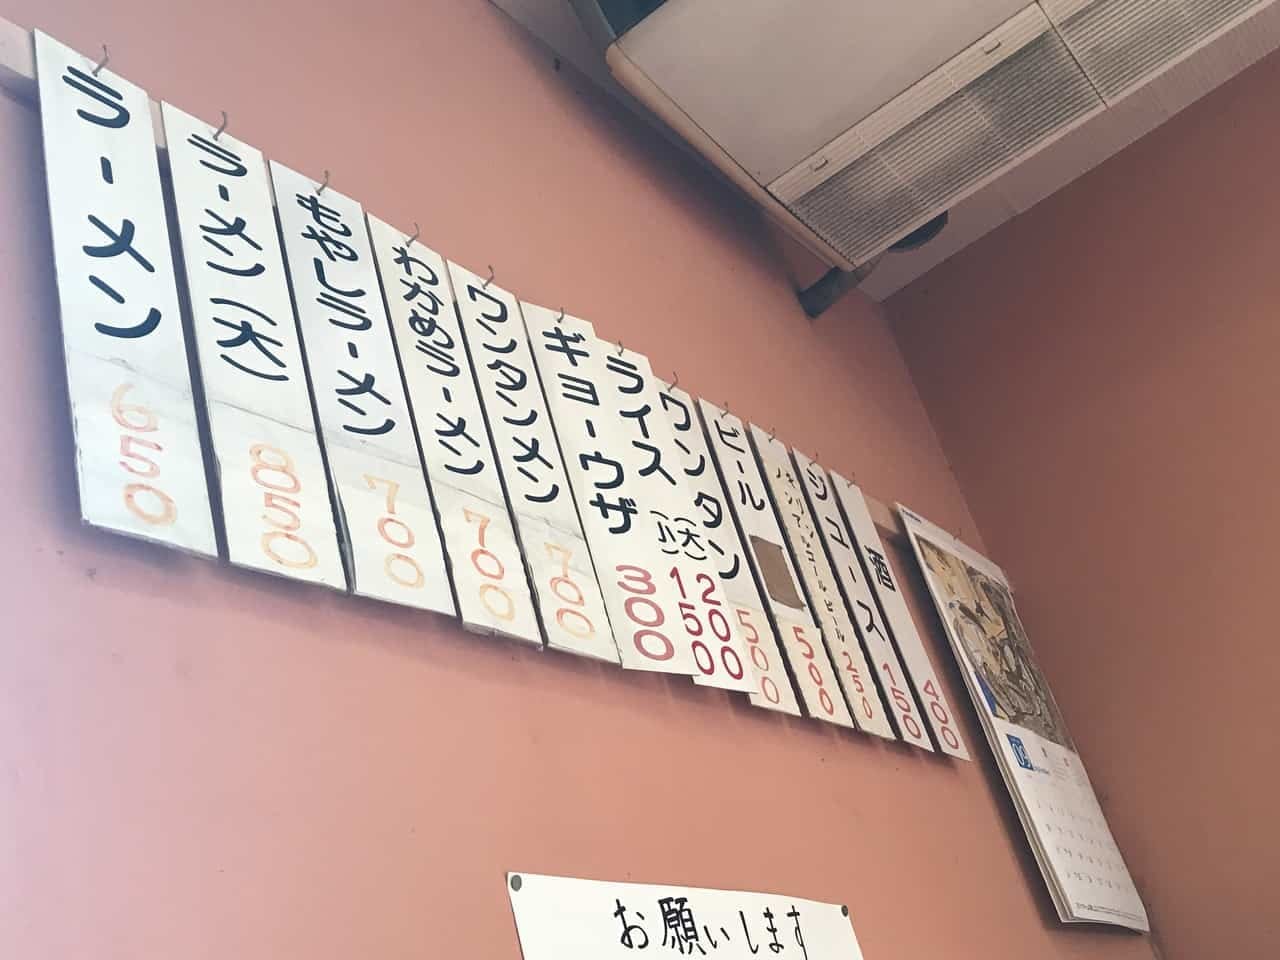 ラーメン 650
ラーメン(大) 850
もやしラーメン 700
わかめラーメン 700
ワンタンメン 700
ギョーウザ 300
ライス (大) 200
(小) 150
ワンタン 500
ビール 500
ノンアルコールビール 250
ジュース 150
酒 400
09
お願いします